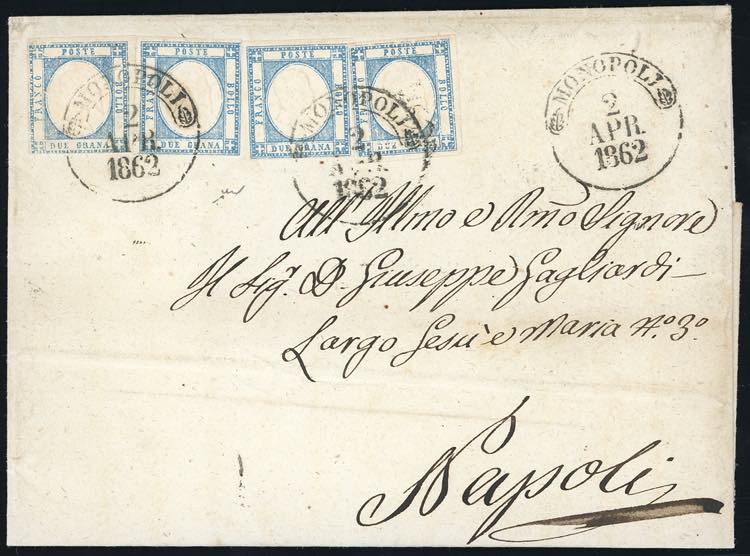 POSTE
FRANCO
BOLLO
DUE GRANA
POSTE
FRANCO
BOLLO
DUE GRANA
POSTE
FRANCO
BOLLO
DUE GRANA
POSTE
FRANCO
BOLLO
DUE GRANA
MONOPOLI
2
APR.
1862
MONOPOLI
2
APR.
1862
MONOPOLI
2
APR.
1862
All' Illmo e Rmo Signore
Il Sigr. D. Giuseppe Gagliardi —
Largo Gesù e Maria No. 3o.
Napoli